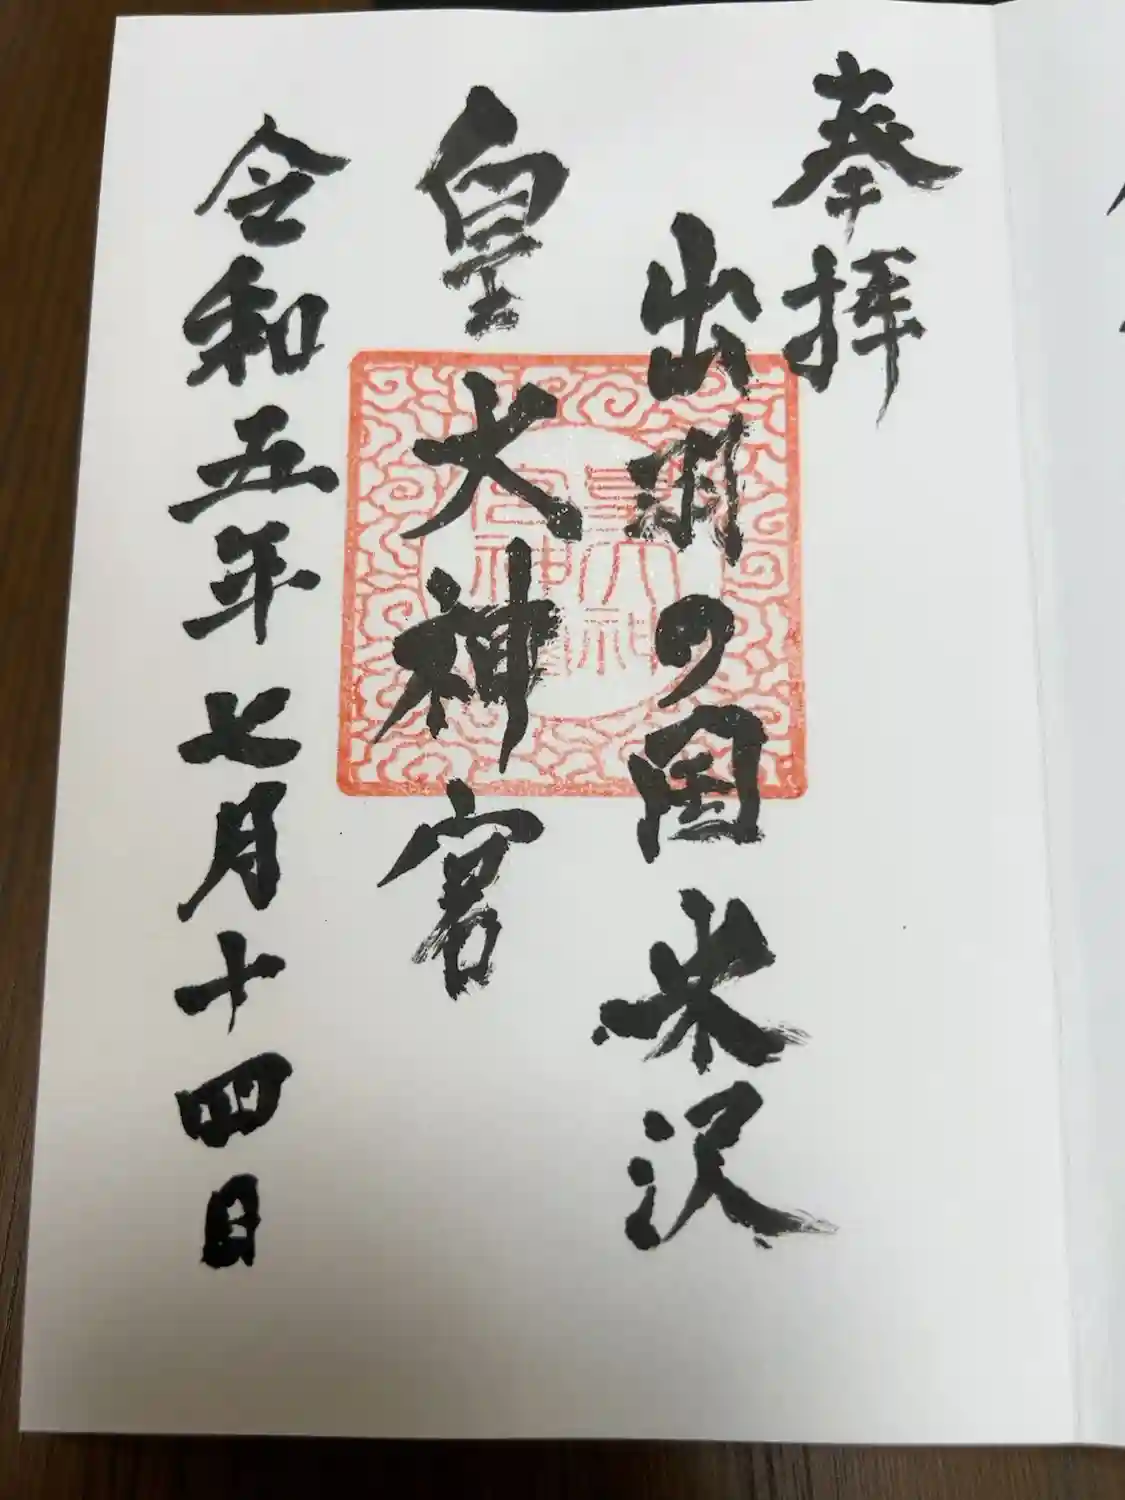 奉拝
出羽の国米沢
皇大神宮
令和五年七月十四日